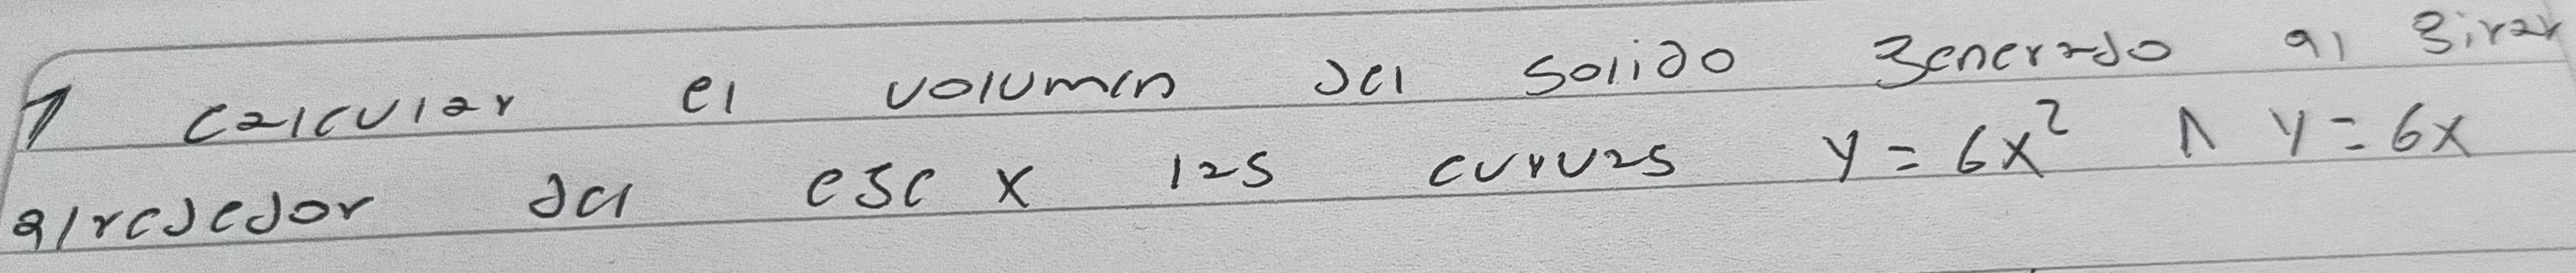 1 calcular el volumen del solido generado al girar
alrededor del eje x las curvas y = 6x² ∧ y = 6x